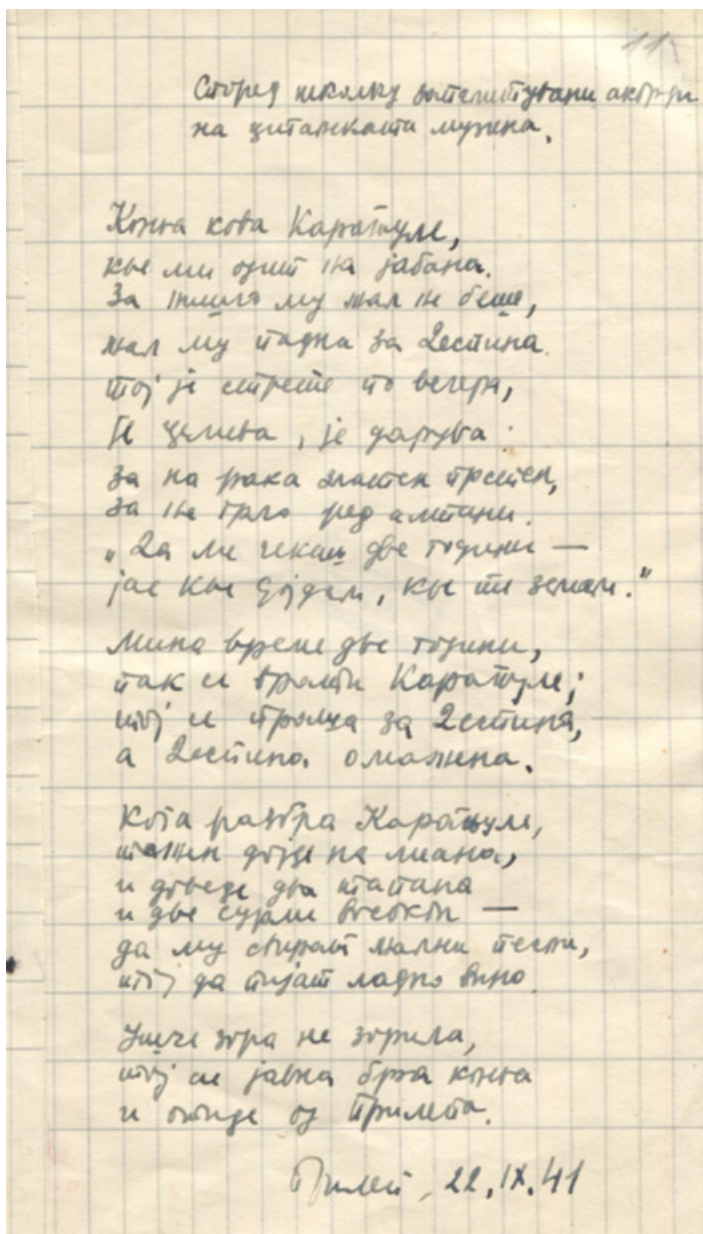 11
Според неколку
на циганската музика.
Коња кова Карапуле,
кье ми одит на јабана.
За никого му жал не беше,
жал му падна за Деспина.
тој је стрете по вечера,
је целива, је дарува:
за на рака златен прстен,
за на грло ред алтани.
„Да ме чекаш две години —
јас кье дојдем, кье те земам."
Мина време две години,
пак се врати Карапуле;
тој се проша за Деспина,
а Деспина омажена.
Која разбра Карапуле,
тажен дојде на меана,
и доведе два тапана
и две сурли високи —
да му свират жални песни,
тој да пијат ладно вино.
Ушче зора не зорила,
тој си јавна брза коња
и отиде од Прилепа.
Прилеп, 22.IX.41